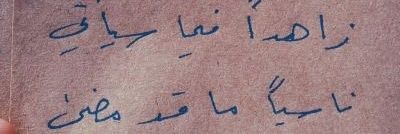 زاهداً فيما سيأتي
ناسياً ما قد مضى